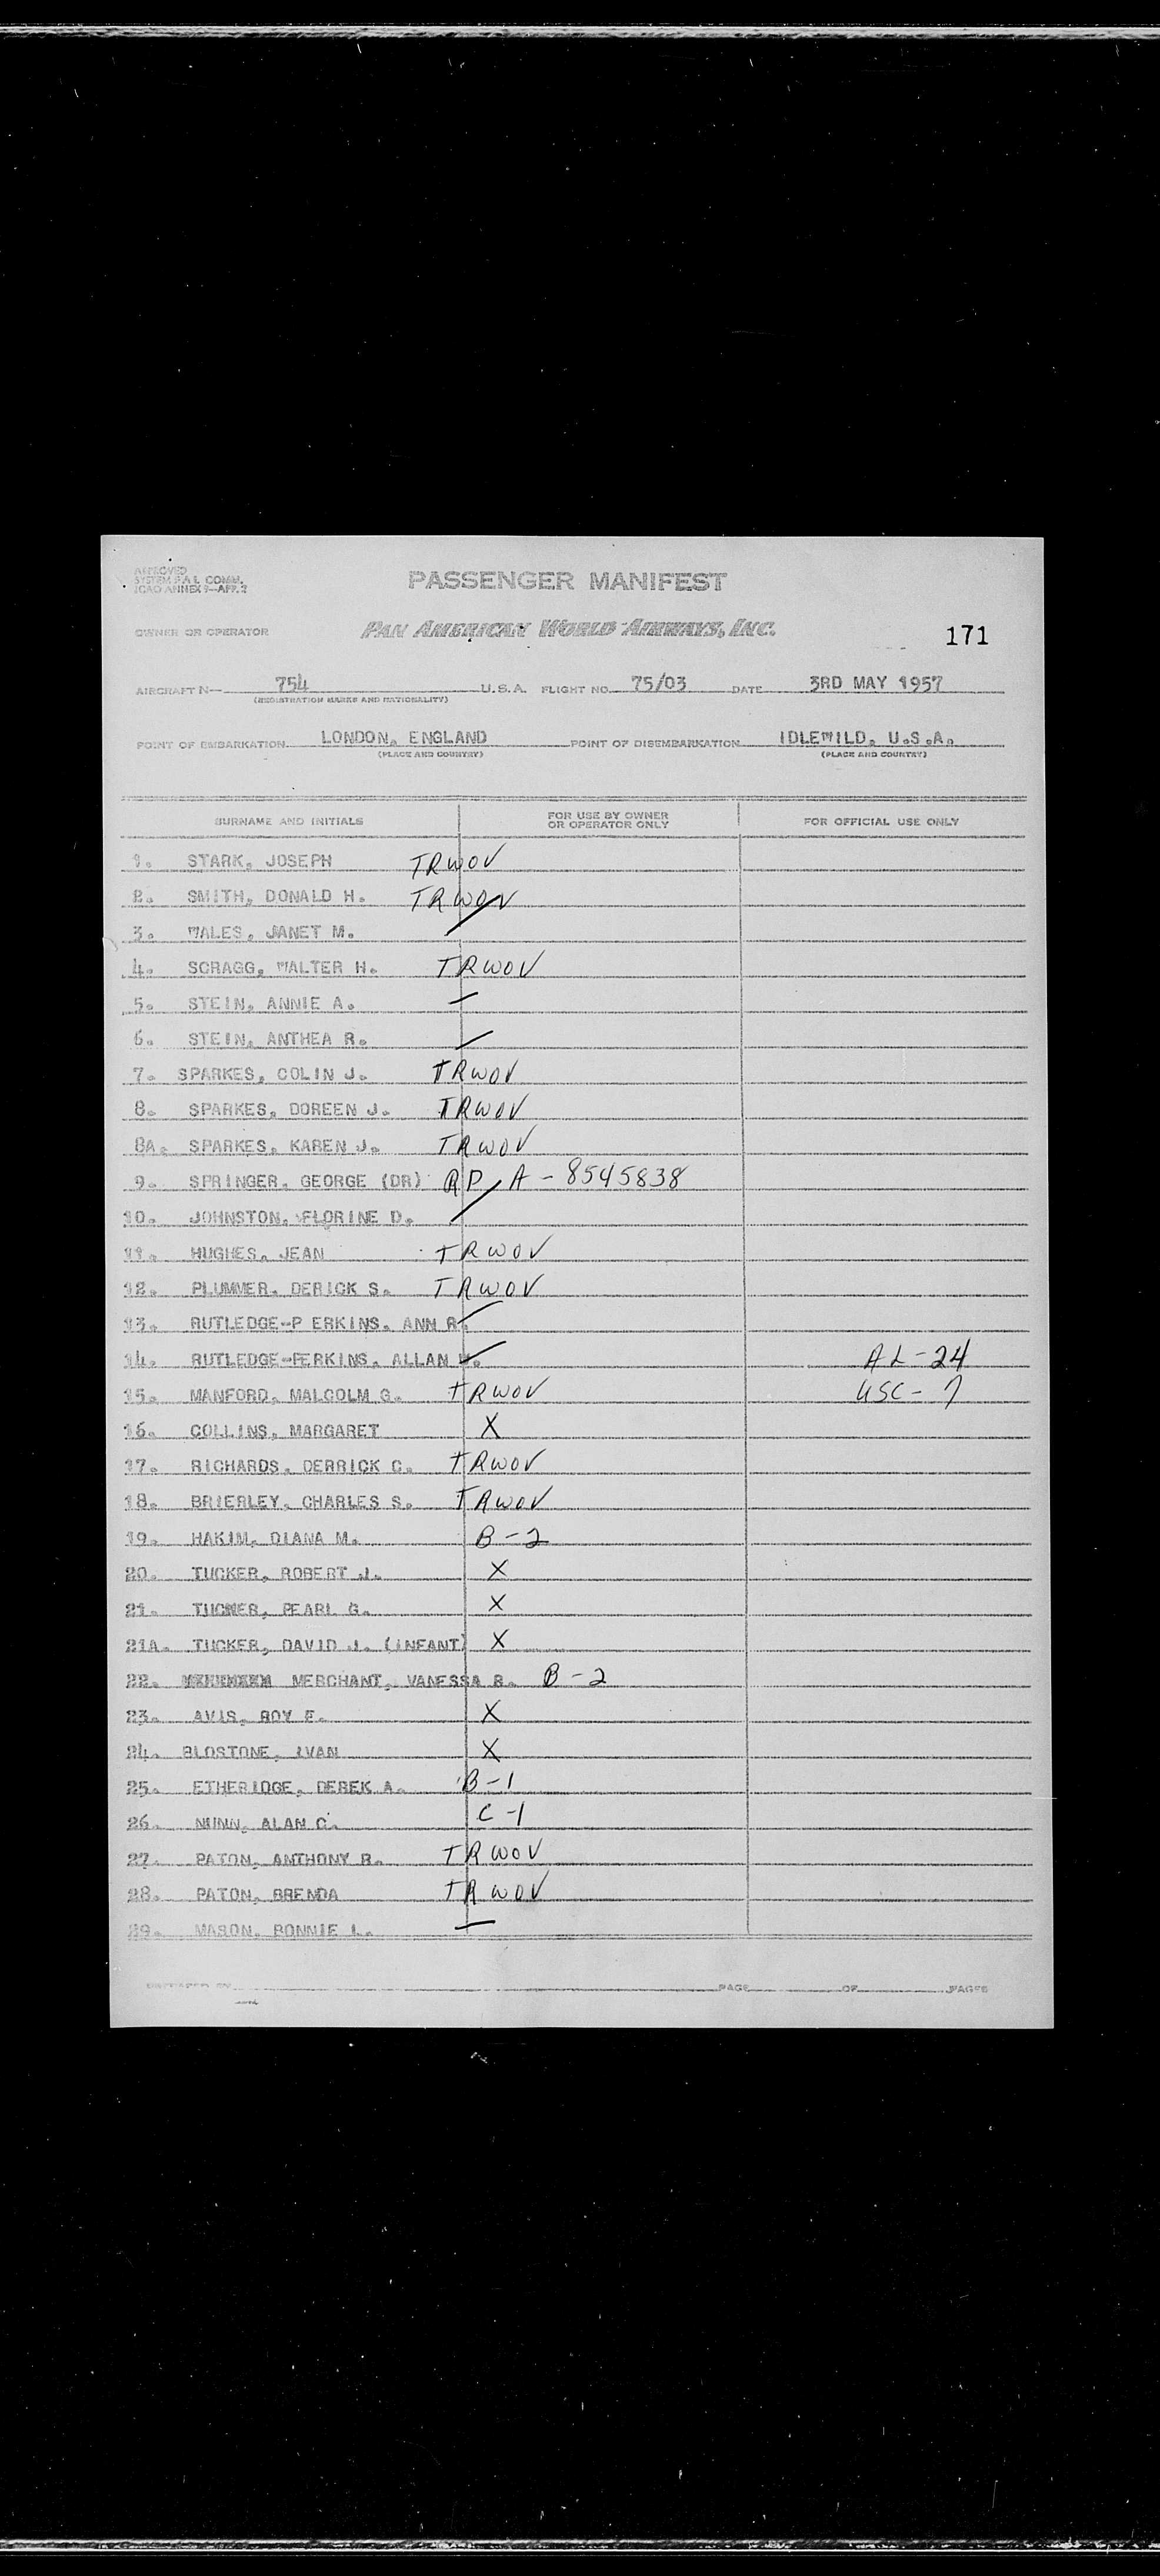 APPROVED
SYSTEM F.A.L. COMM.
ICAO ANNEX 9—APP. 2
PASSENGER MANIFEST
OWNER OR OPERATOR PAN AMERICAN WORLD AIRWAYS, INC.
171
AIRCRAFT N— 754 U.S.A. FLIGHT NO. 75/03 DATE 3RD MAY 1957
(REGISTRATION MARKS AND NATIONALITY)
POINT OF EMBARKATION LONDON, ENGLAND POINT OF DISEMBARKATION IDLEWILD, U.S.A.
(PLACE AND COUNTRY) (PLACE AND COUNTRY)
SURNAME AND INITIALS FOR USE BY OWNER OR OPERATOR ONLY FOR OFFICIAL USE ONLY
1. STARK, JOSEPH TRWOV
2. SMITH, DONALD H. TRWOV
3. WALES, JANET M.
4. SCRAGG, WALTER H. TRWOV
5. STEIN, ANNIE A.
6. STEIN, ANTHEA R.
7. SPARKES, COLIN J. TRWOV
8. SPARKES, DOREEN J. TRWOV
8A. SPARKES, KAREN J. TRWOV
9. SPRINGER, GEORGE (DR) RP A-8545838
10. JOHNSTON, FLORINE D.
11. HUGHES, JEAN TRWOV
12. PLUMMER, DERICK S. TRWOV
13. RUTLEDGE-P ERKINS, ANN R.
14. RUTLEDGE-PERKINS, ALLAN AL-24
15. MANFORD, MALCOLM G. TRWOV USC-7
16. COLLINS, MARGARET X
17. RICHARDS, DERRICK C. TRWOV
18. BRIERLEY, CHARLES S. TRWOV
19. HAKIM, DIANA M. B-2
20. TUCKER, ROBERT J. X
21. TUCKER, PEARL G. X
21A. TUCKER, DAVID J. (INFANT) X
22. MERCHANT, VANESSA R. B-2
23. AVIS, ROY E. X
24. BLOSTONE, IVAN X
25. ETHERIDGE, DEREK A. B-1
26. NUNN, ALAN C. C-1
27. PATON, ANTHONY R. TRWOV
28. PATON, BRENDA TRWOV
29. MASON, BONNIE L.
PREPARED BY PAGE OF PAGES